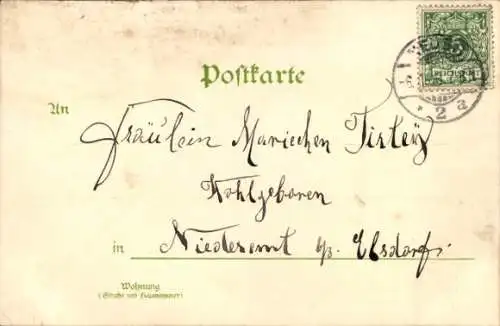 Postkarte
An
Fräulein Mariechen Tirtey
Wohlgeboren
in Niederemt b/ Elsdorf
Wohnung
(Straße und Hausnummer)
2 a